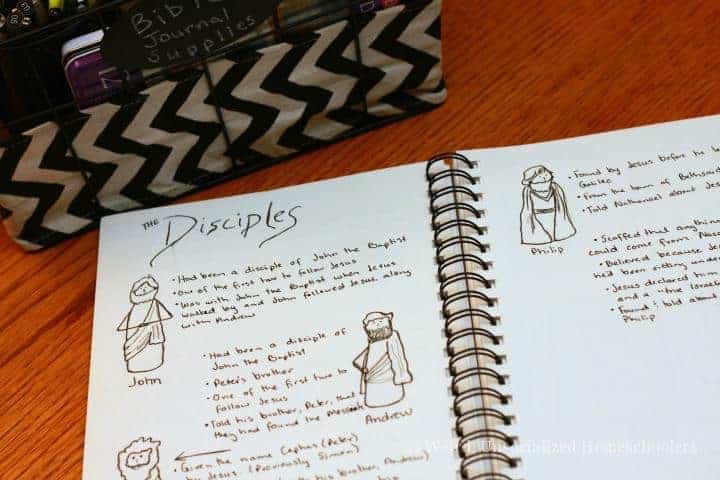 Bible
Journal
Supplies
THE Disciples
• Had been a disciple of John the Baptist
• One of the first two to follow Jesus
• Was with John the Baptist when Jesus
walked by and John followed Jesus along
with Andrew
John
• Had been a disciple of
John the Baptist
• Peter's brother
• One of the first two to
follow Jesus
• Told his brother, Peter, that
they had found the Messiah
Andrew
• Given the name Cephas (Peter)
by Jesus (Previously Simon)
his brother, Andrew)
• Found by Jesus before he
Galilee
• From the town of Bethsaida
• Told Nathanael about
Philip
• Scoffed that anything
could come from
• Believed because
he'd been sitting under
• Jesus declared him
and a "true
• Found & told about
Philip
Unsocialized Homeschoolers